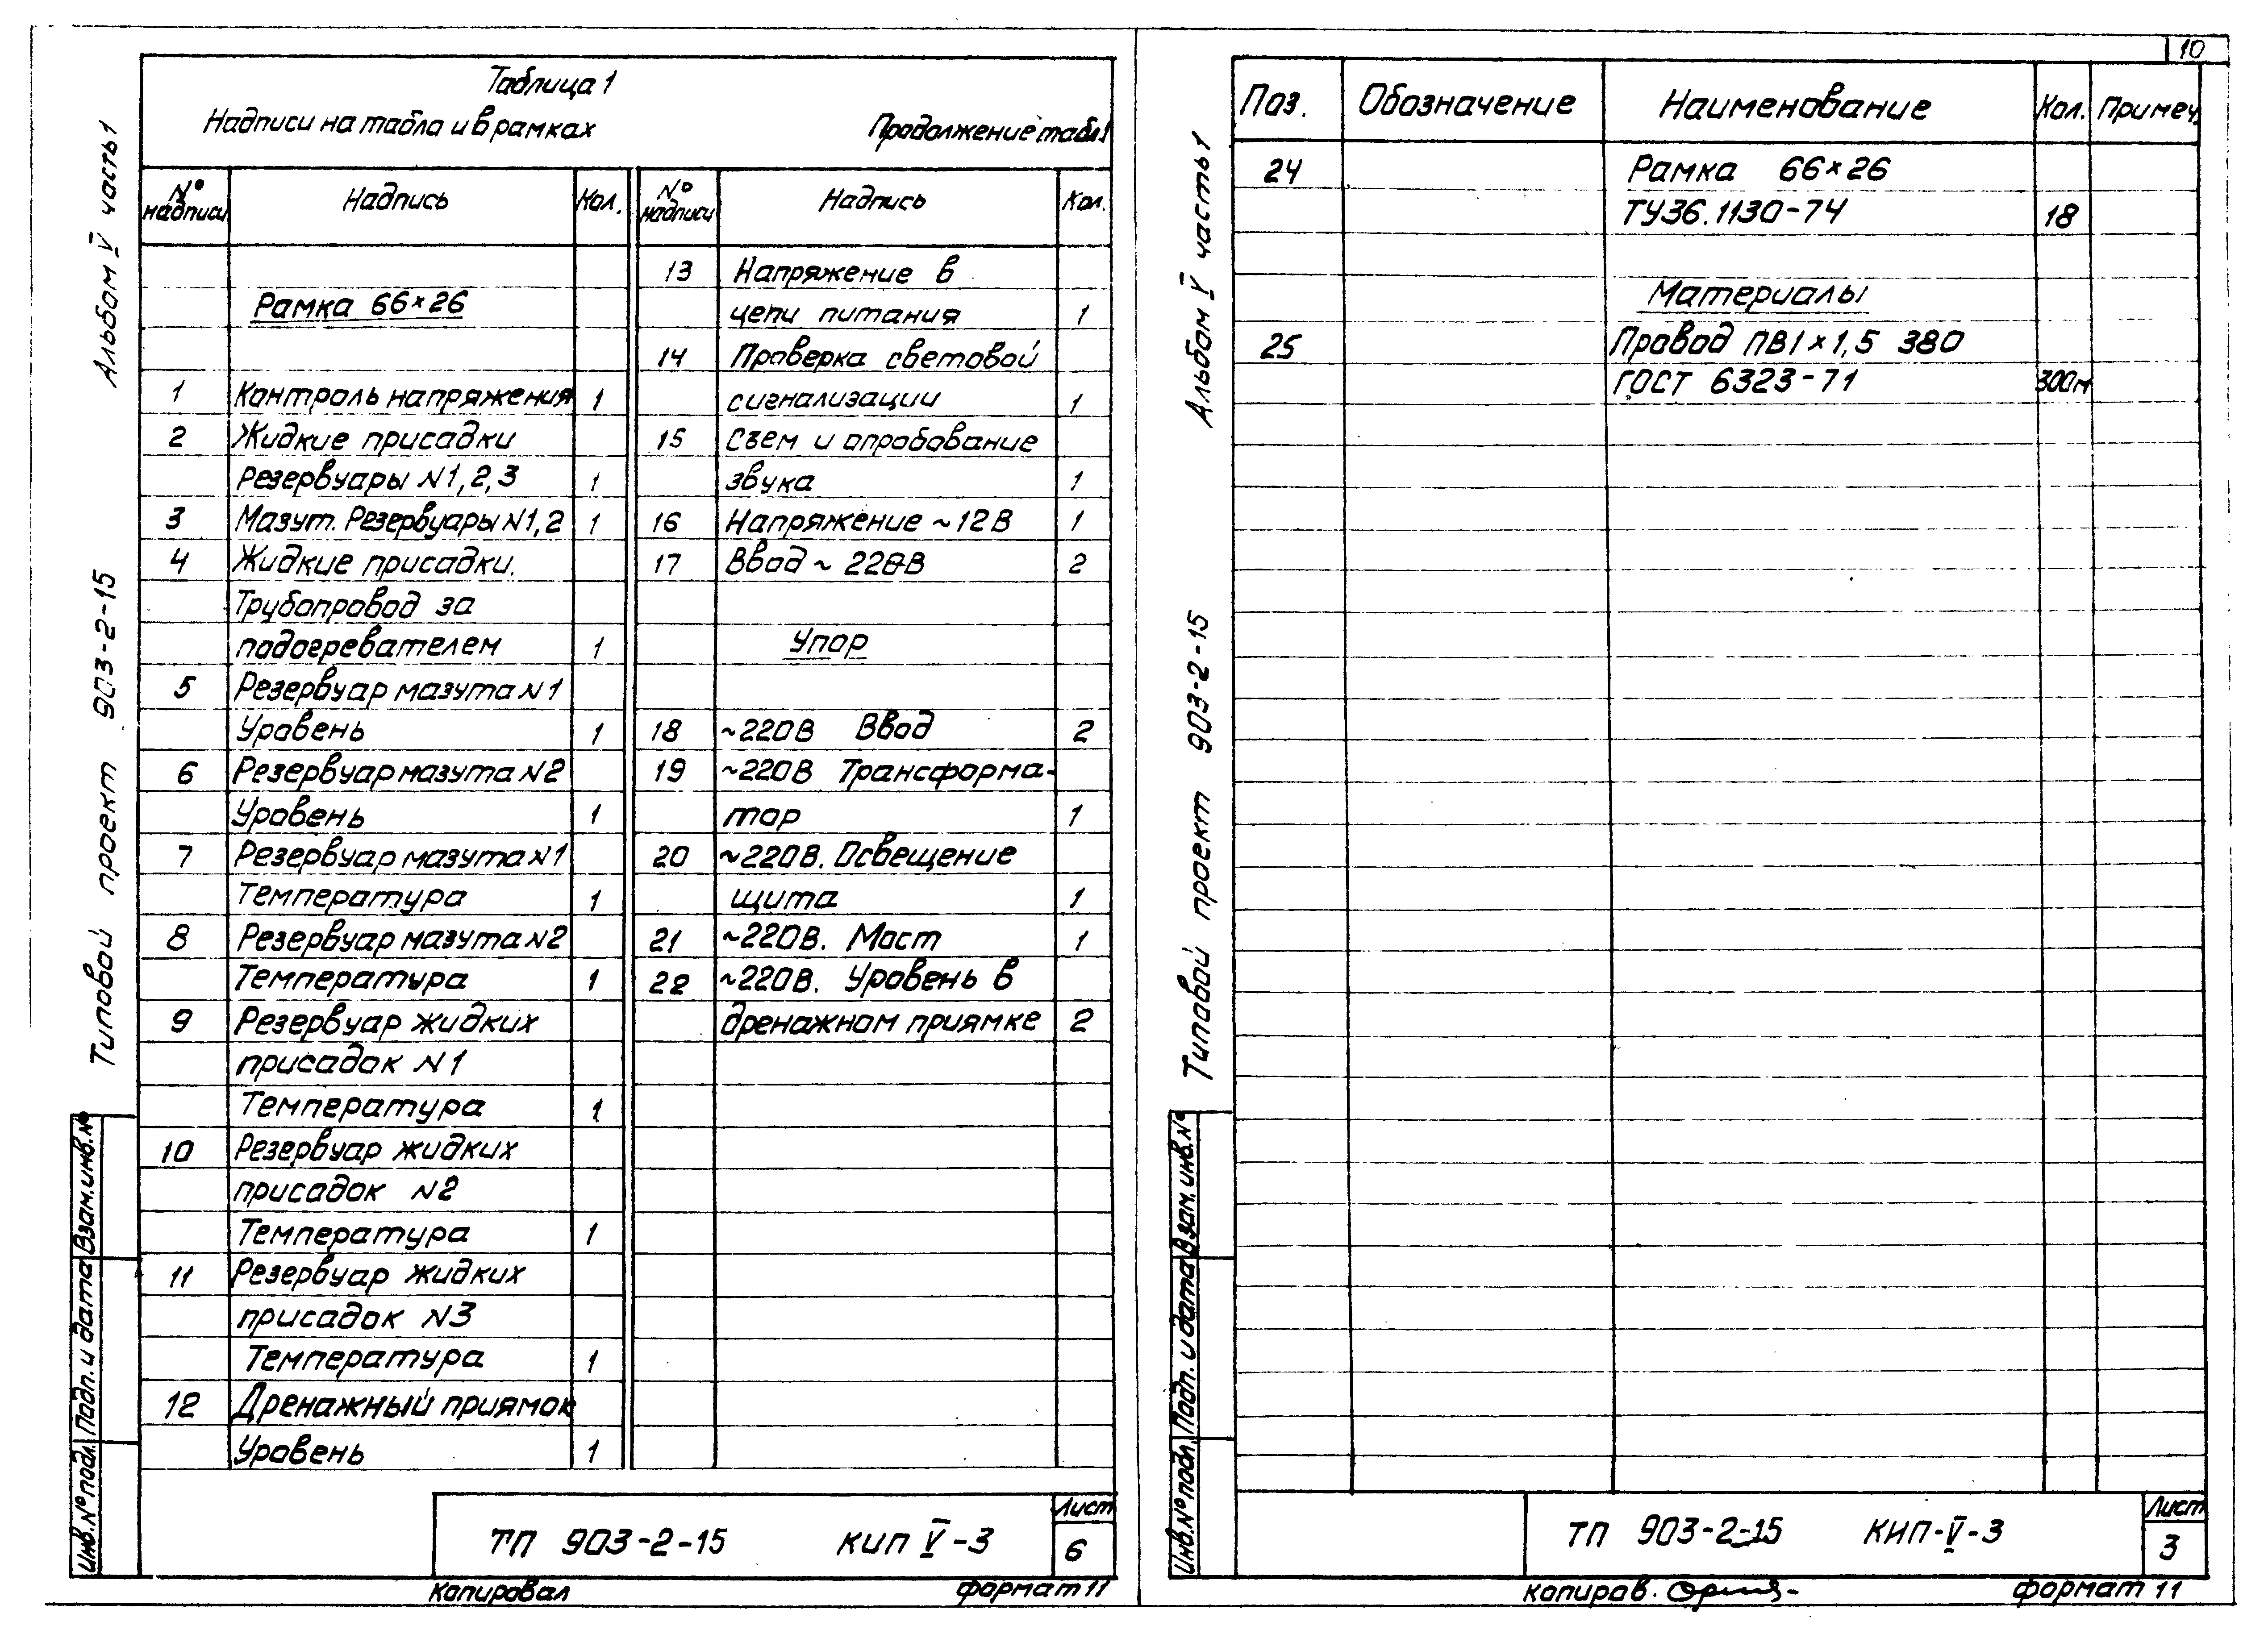 Таблица 1
Надписи на табло и в рамках
Продолжение табл 1
№ надписи
Надпись
Кол.
Рамка 66×26
1 Контроль напряжения 1
2 Жидкие присадки
Резервуары №1, 2, 3 1
3 Мазут. Резервуары №1, 2 1
4 Жидкие присадки.
Трубопровод за
подогревателем 1
5 Резервуар мазута №1
Уровень 1
6 Резервуар мазута №2
Уровень 1
7 Резервуар мазута №1
Температура 1
8 Резервуар мазута №2
Температура 1
9 Резервуар жидких
присадок №1
Температура 1
10 Резервуар жидких
присадок №2
Температура 1
11 Резервуар жидких
присадок №3
Температура 1
12 Дренажный приямок
Уровень 1
№ надписи
Надпись
Кол.
13 Напряжение в
цепи питания 1
14 Проверка световой
сигнализации 1
15 Съем и опробование
звука 1
16 Напряжение ~12В 1
17 Ввод ~ 220В 2
Упор
18 ~220В Ввод 2
19 ~220В Трансформа-
тор 1
20 ~220В. Освещение
щита 1
21 ~220В. Мост 1
22 ~220В. Уровень в
дренажном приямке 2
ТП 903-2-15 КИП V-3
Лист
6
Копировал
формат 11
Альбом V часть 1
Типовой проект 903-2-15
Взам. инв. №
Подп. и дата
Инв. № подл.
10
Поз.
Обозначение
Наименование
Кол.
Примеч.
24 Рамка 66×26
ТУ36.1130-74 18
Материалы
25 Провод ПВ1×1,5 380
ГОСТ 6323-71 300м
ТП 903-2-15 КИП-V-3
Лист
3
Копиров.
формат 11
Альбом V часть 1
Типовой проект 903-2-15
Взам. инв. №
Подп. и дата
Инв. № подл.